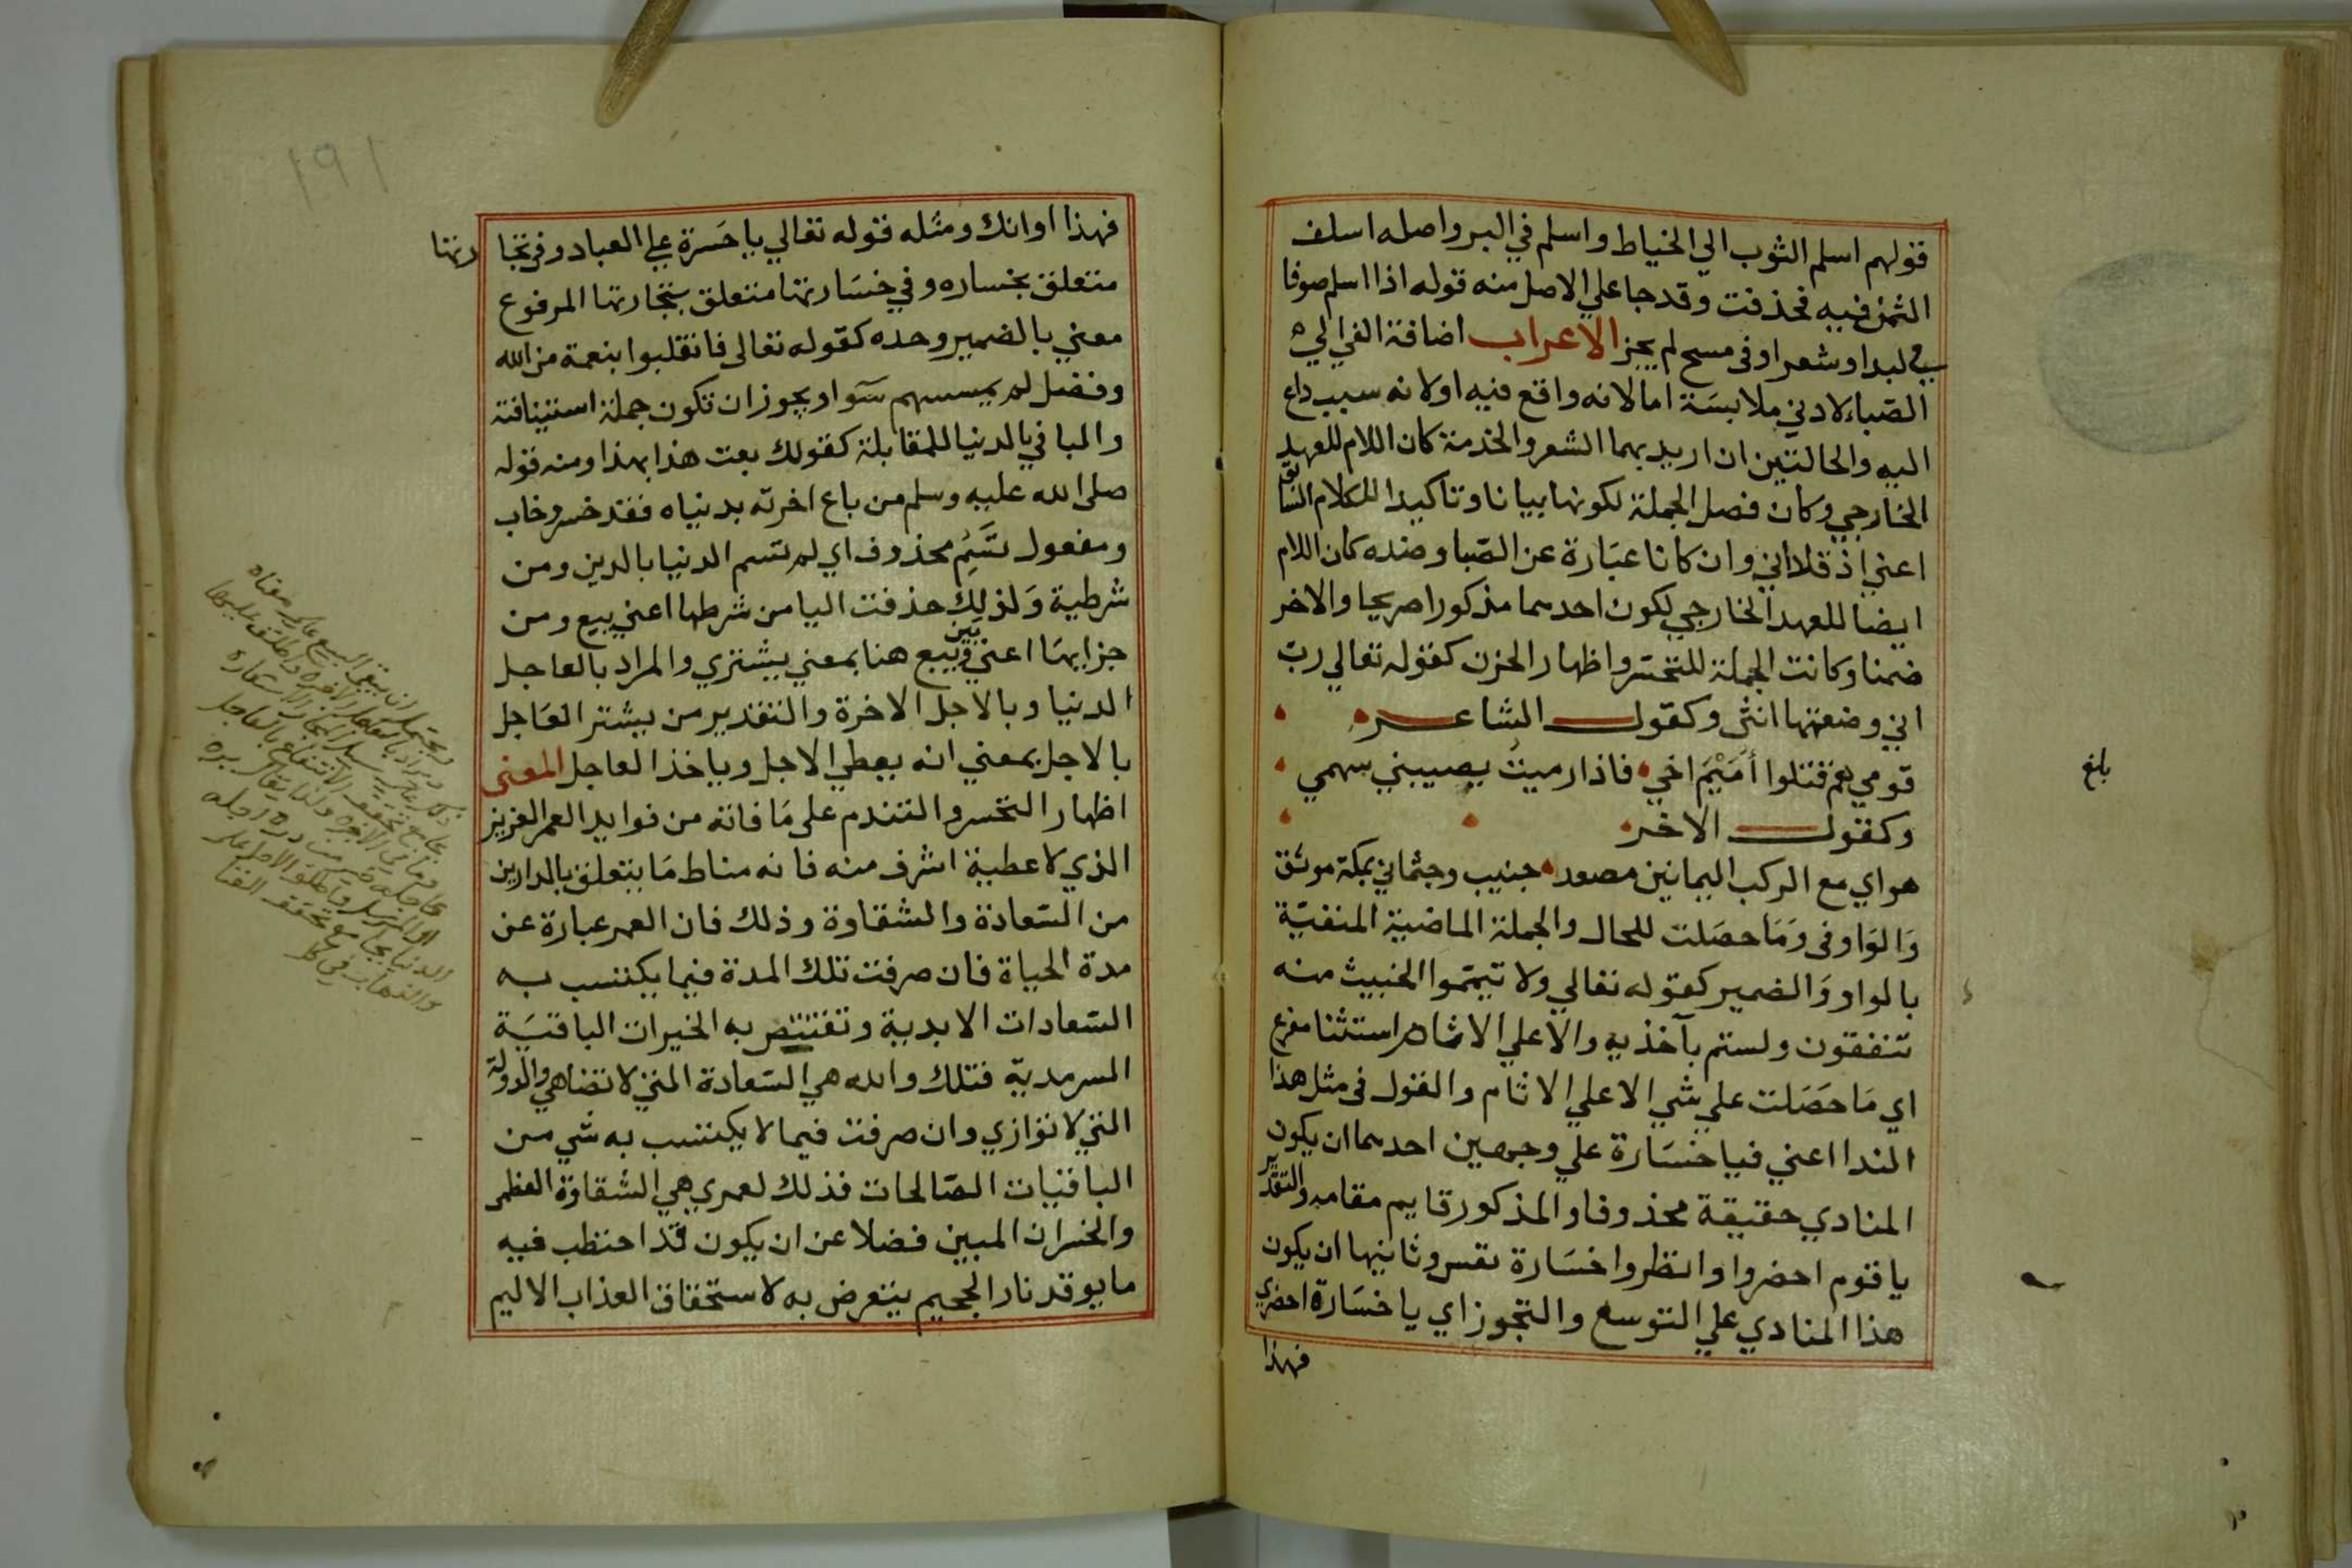 قولهم اسلم الثوب الي الخياط واسلم في البر واصله اسلف
الثمن فيه فحذفت وقد جا علي الاصل منه قوله اذا اسلم صوفا
في لبد او شعرا وفى مسح لم يجز الاعراب اضافة الغي الي
الصباء لادني ملابسة امالانه واقع فيه اولانه سبب داع
اليه والحالتين ان اريد بهما الشعر والخدمة كان اللام للعهد
الخارجي وكان فصل الجملة لكونها بيانا وتاكيدا للكلام السابق
اعني اذ قلا اني وان كانا عبارة عن الصبا وضده كان اللام
ايضا للعهد الخارجي لكون احدهما مذكورا صريحا والاخر
ضمنا وكانت الجملة للتحسر واظهار الحزن كقوله تعالي رب
اني وضعتها انثى وكقول الشاعر
قومي هم قتلوا أميم اخي فاذا رميت يصيبني سهمي
وكقول الاخر
هواي مع الركب اليمانين مصعد جنيب وجثماني بمكة موثق
والواو فى وما حصلت للحال والجملة الماضية المنفية
بالواو والضمير كقوله تعالي ولا تيمموا الخبيث منه
تنفقون ولستم بآخذيه والا علي الاثام استثنا مفرغ
اي ما حصلت علي شي الا علي الاثام والقول فى مثل هذا
الندا اعني فيا خسارة علي وجهين احدهما ان يكون
المنادي حقيقة محذوفا والمذكور قايم مقامه والتقدير
يا قوم احضروا وانظروا خسارة نفس وثانيها ان يكون
هذا المنادي علي التوسع والتجوز اي يا خسارة احضري
فهذا
بلغ
١٩١
فهذا اوانك ومثله قوله تعالي يا حسرة علي العباد وفي تجا
رتها
متعلق بخساره وفي خسارتها متعلق بتجارتها المرفوع
معني بالضمير وحده كقوله تعالى فانقلبوا بنعمة من الله
وفضل لم يمسسهم سوء ويجوز ان تكون جملة استينافة
والبا في بالدنيا للمقابلة كقولك بعت هذا بهذا ومنه قوله
صلى الله عليه وسلم من باع اخرته بدنياه فقد خسر وخاب
ومفعول تسم محذوف اي لم تسم الدنيا بالدين ومن
شرطية ولذلك حذفت اليا من شرطها اعني يبع ومن
جزايها اعني يبن ويبيع هنا بمعني يشتري والمراد بالعاجل
الدنيا وبالاجل الاخرة والتقدير من يشتر العاجل
بالاجل بمعني انه يعطي الاجل وياخذ العاجل المعنى
اظهار التحسر والتندم على ما فاته من فوايد العمر العزيز
الذي لا عطية اشرف منه فانه مناط ما يتعلق بالدارين
من السعادة والشقاوة وذلك فان العمر عبارة عن
مدة الحياة فان صرفت تلك المدة فيما يكتسب به
السعادات الابدية وتقتنص به الخيرات الباقية
السرمدية فتلك والله هي السعادة التي لا تضاهي والدولة
التي لا توازي وان صرفت فيما لا يكتسب به شي من
الباقيات الصالحات فذلك لعمري هي الشقاوة العظمى
والخسران المبين فضلا عن ان يكون قد احتطب فيه
ما يوقد نار الجحيم يتعرض به لاستحقاق العذاب الاليم